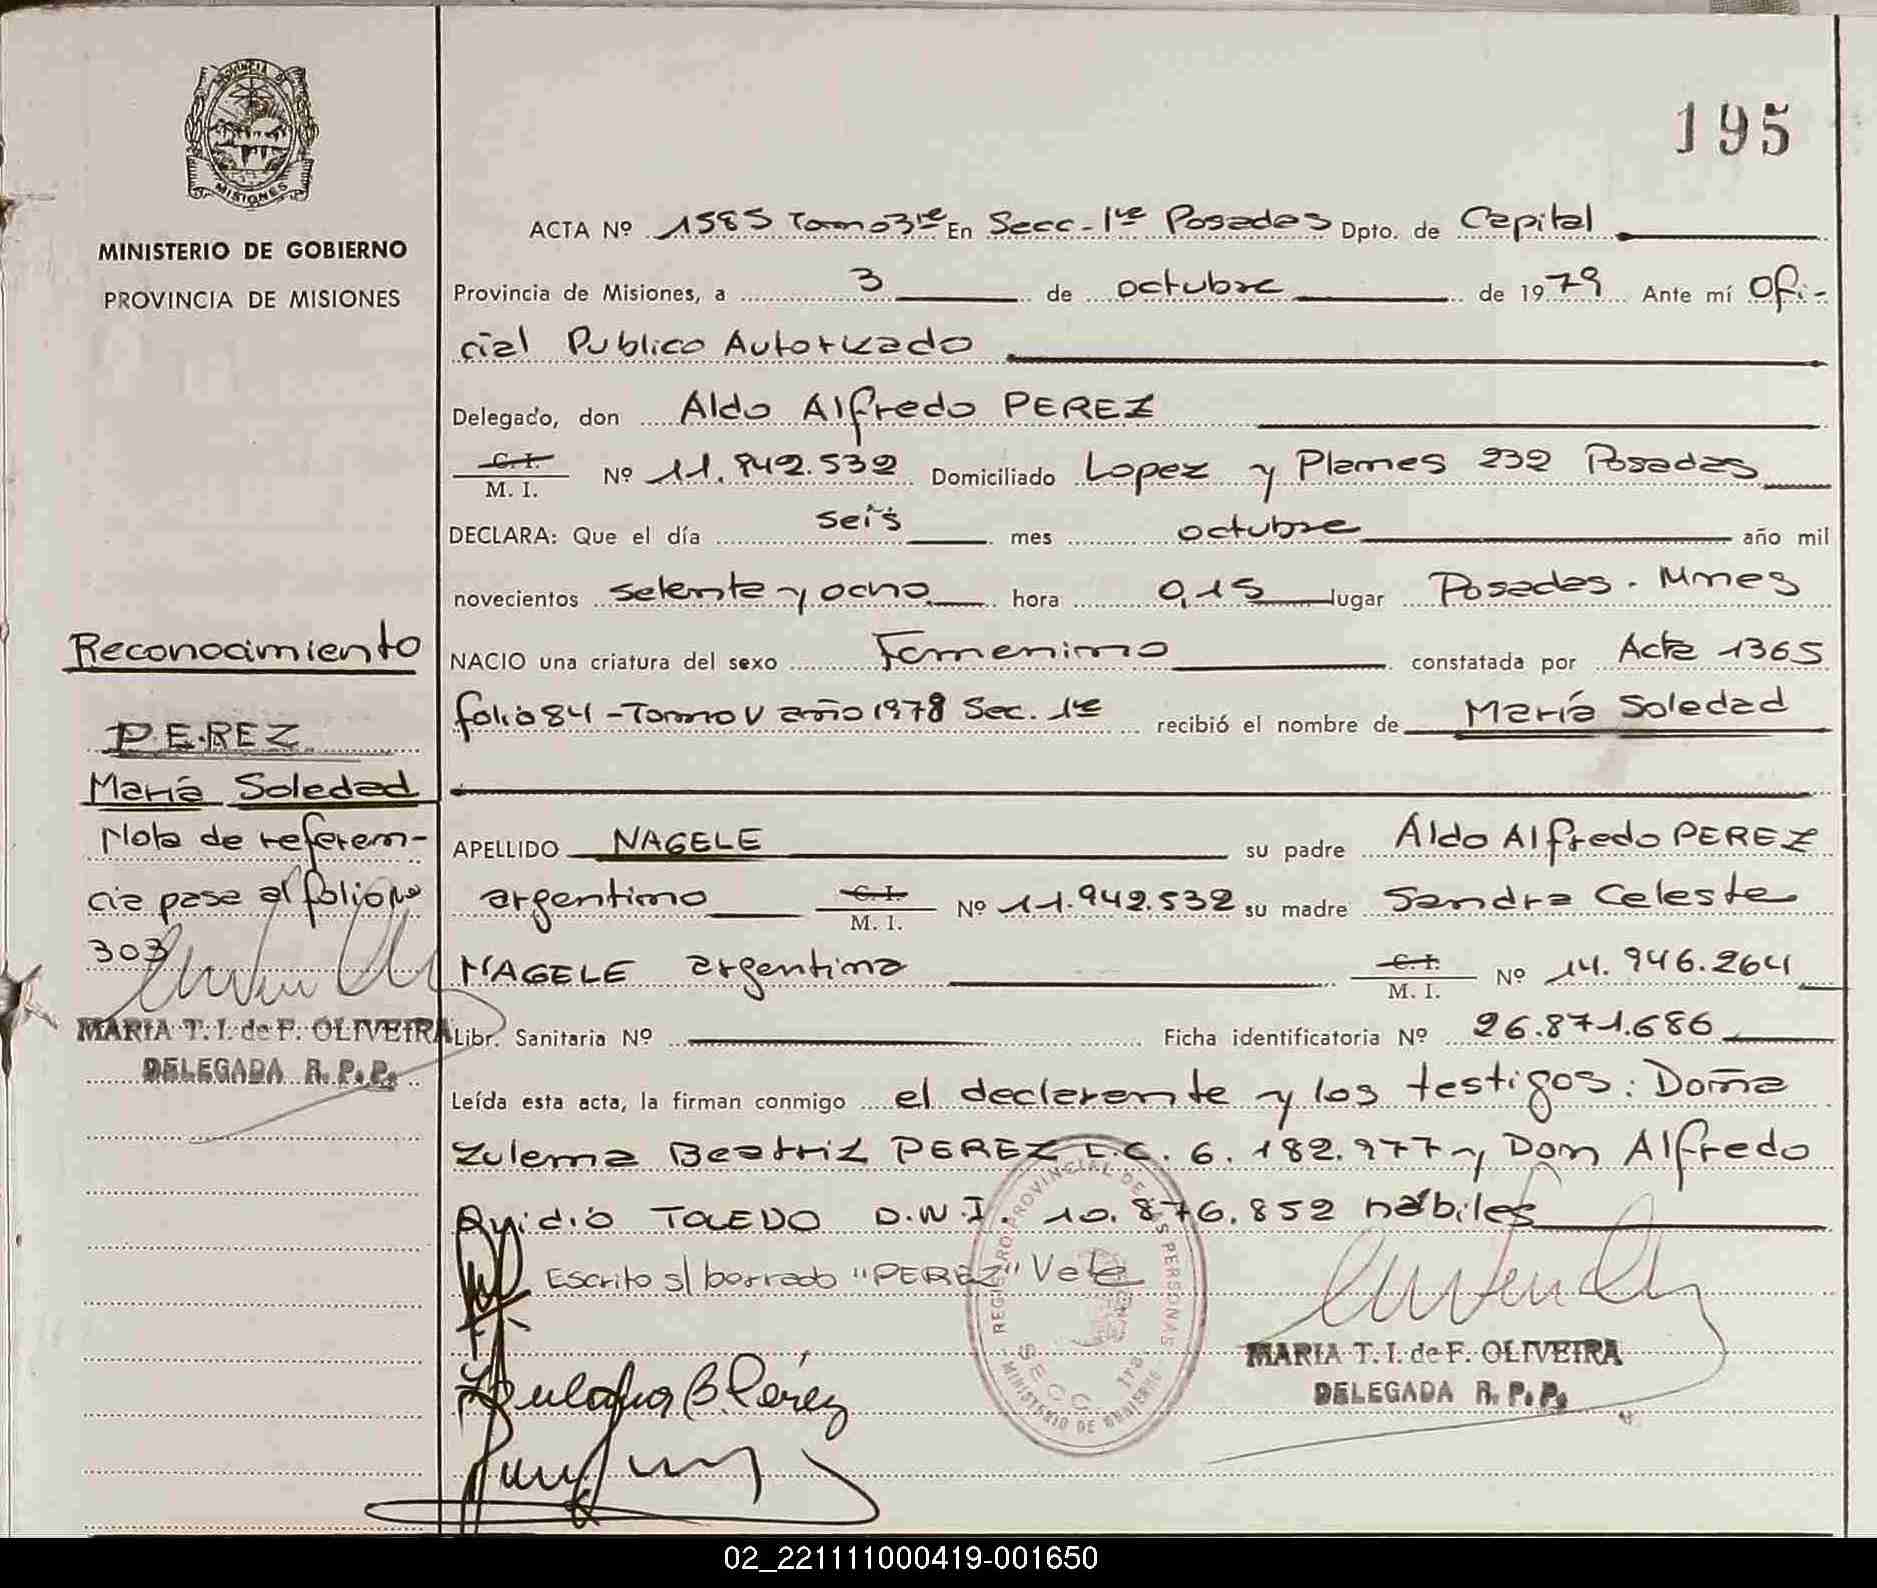 PROVINCIA DE
MISIONES
MINISTERIO DE GOBIERNO
PROVINCIA DE MISIONES
195
ACTA Nº 1585 Tomo 3re En Secc - 1re Posadas Dpto. de Capital
Provincia de Misiones, a 3 de octubre de 1979 Ante mí Ofi-
cial Publico Autorizado
Delegado, don Aldo Alfredo PEREZ
C. I.
M. I. Nº 11.942.532 Domiciliado Lopez y Planes 232 Posadas
DECLARA: Que el día seis mes octubre año mil
novecientos setenta y ocho hora 0,15 lugar Posadas. Mnes
NACIO una criatura del sexo Femenino constatada por Acta 1365
folio 84 - Tomo V año 1978 Sec. 1re recibió el nombre de María Soledad
APELLIDO NAGELE su padre Aldo Alfredo PEREZ
argentino C. I.
M. I. Nº 11.942.532 su madre Sandra Celeste
NAGELE argentina C. I.
M. I. Nº 14.946.264
Libr. Sanitaria Nº Ficha identificatoria Nº 26.871.686
Leída esta acta, la firman conmigo el declarante y los testigos: Doña
Zulema Beatriz PEREZ L.C. 6.182.977 y Don Alfredo
Ovidio TOLEDO D.N.I. 10.876.852 hábiles
Escrito s/ borrado "PEREZ" Vale
B. Pérez
REGISTRO PROVINCIAL DE LAS PERSONAS
SECC. 1ra.
MINISTERIO DE GOBIERNO
MARIA T. I. de F. OLIVEIRA
DELEGADA R. P. P.
Reconocimiento
PEREZ
María Soledad
Nota de referen-
cia pasa al folio Nº
303
MARIA T. I. de F. OLIVEIRA
DELEGADA R. P. P.
02_221111000419-001650